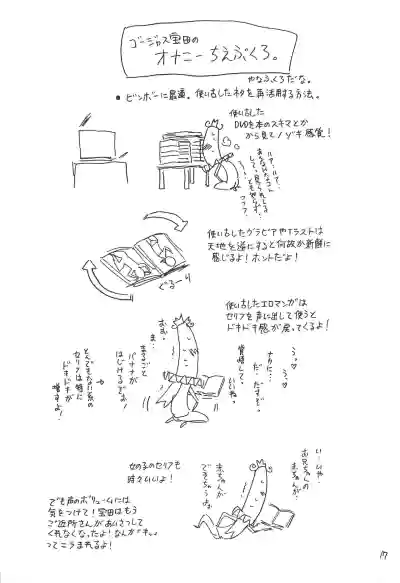 ゴージャス宝田の
オナニーちえぶくろ。
やなふくろだな。
●ビンボーに最適。使い古したネタを再活用する方法。
使い古した
DVDを本のスキマとか
から見てノゾキ感覚!
使い古したグラビアやイラストは
天地を逆にすると何故か新鮮に
感じるよ!ホントだよ!
ぐるーり
使い古したエロマンガは
セリフを声に出して使うと
ドキドキ感が戻ってくるよ!
うっ♡
うっ♡
ナカに…
だ・だすぞ。
覚悟して。
いいね。
むむ。
ま…
まるごと
バナナが
はじけるでおじゃ!
とんでもない系の
セリフは特に
ドキドキが
増すよ!
女の子のセリフも
時々いいよ!
いーいや…
お兄ちゃんの
赤ちゃんが…
赤ちゃんが
できちゃうよお
でも声のボリュームには
気をつけて!宝田はもう
ご近所さんがあいさつして
くれなくなったよ!なんか
ってこうまれるよ!
17